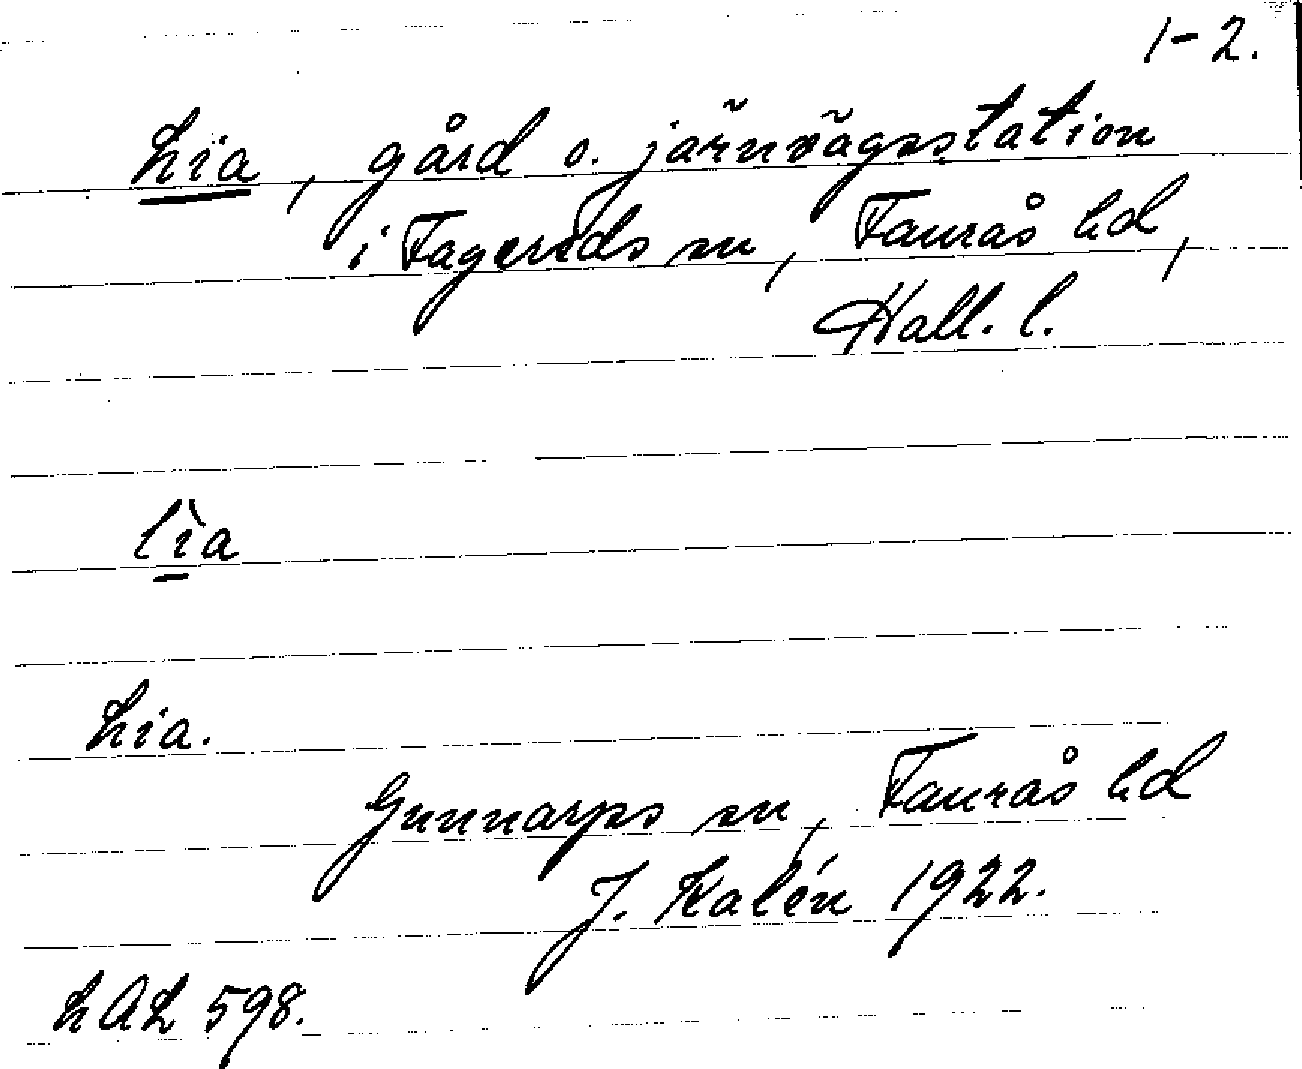 1-2.
Lia, gård o. järnvägsstation
i Fagereds sn, Faurås hd,
Hall. l.
lìa
Lia.
Gunnarps sn, Faurås hd
J. Kalén 1922.
LAL 598.